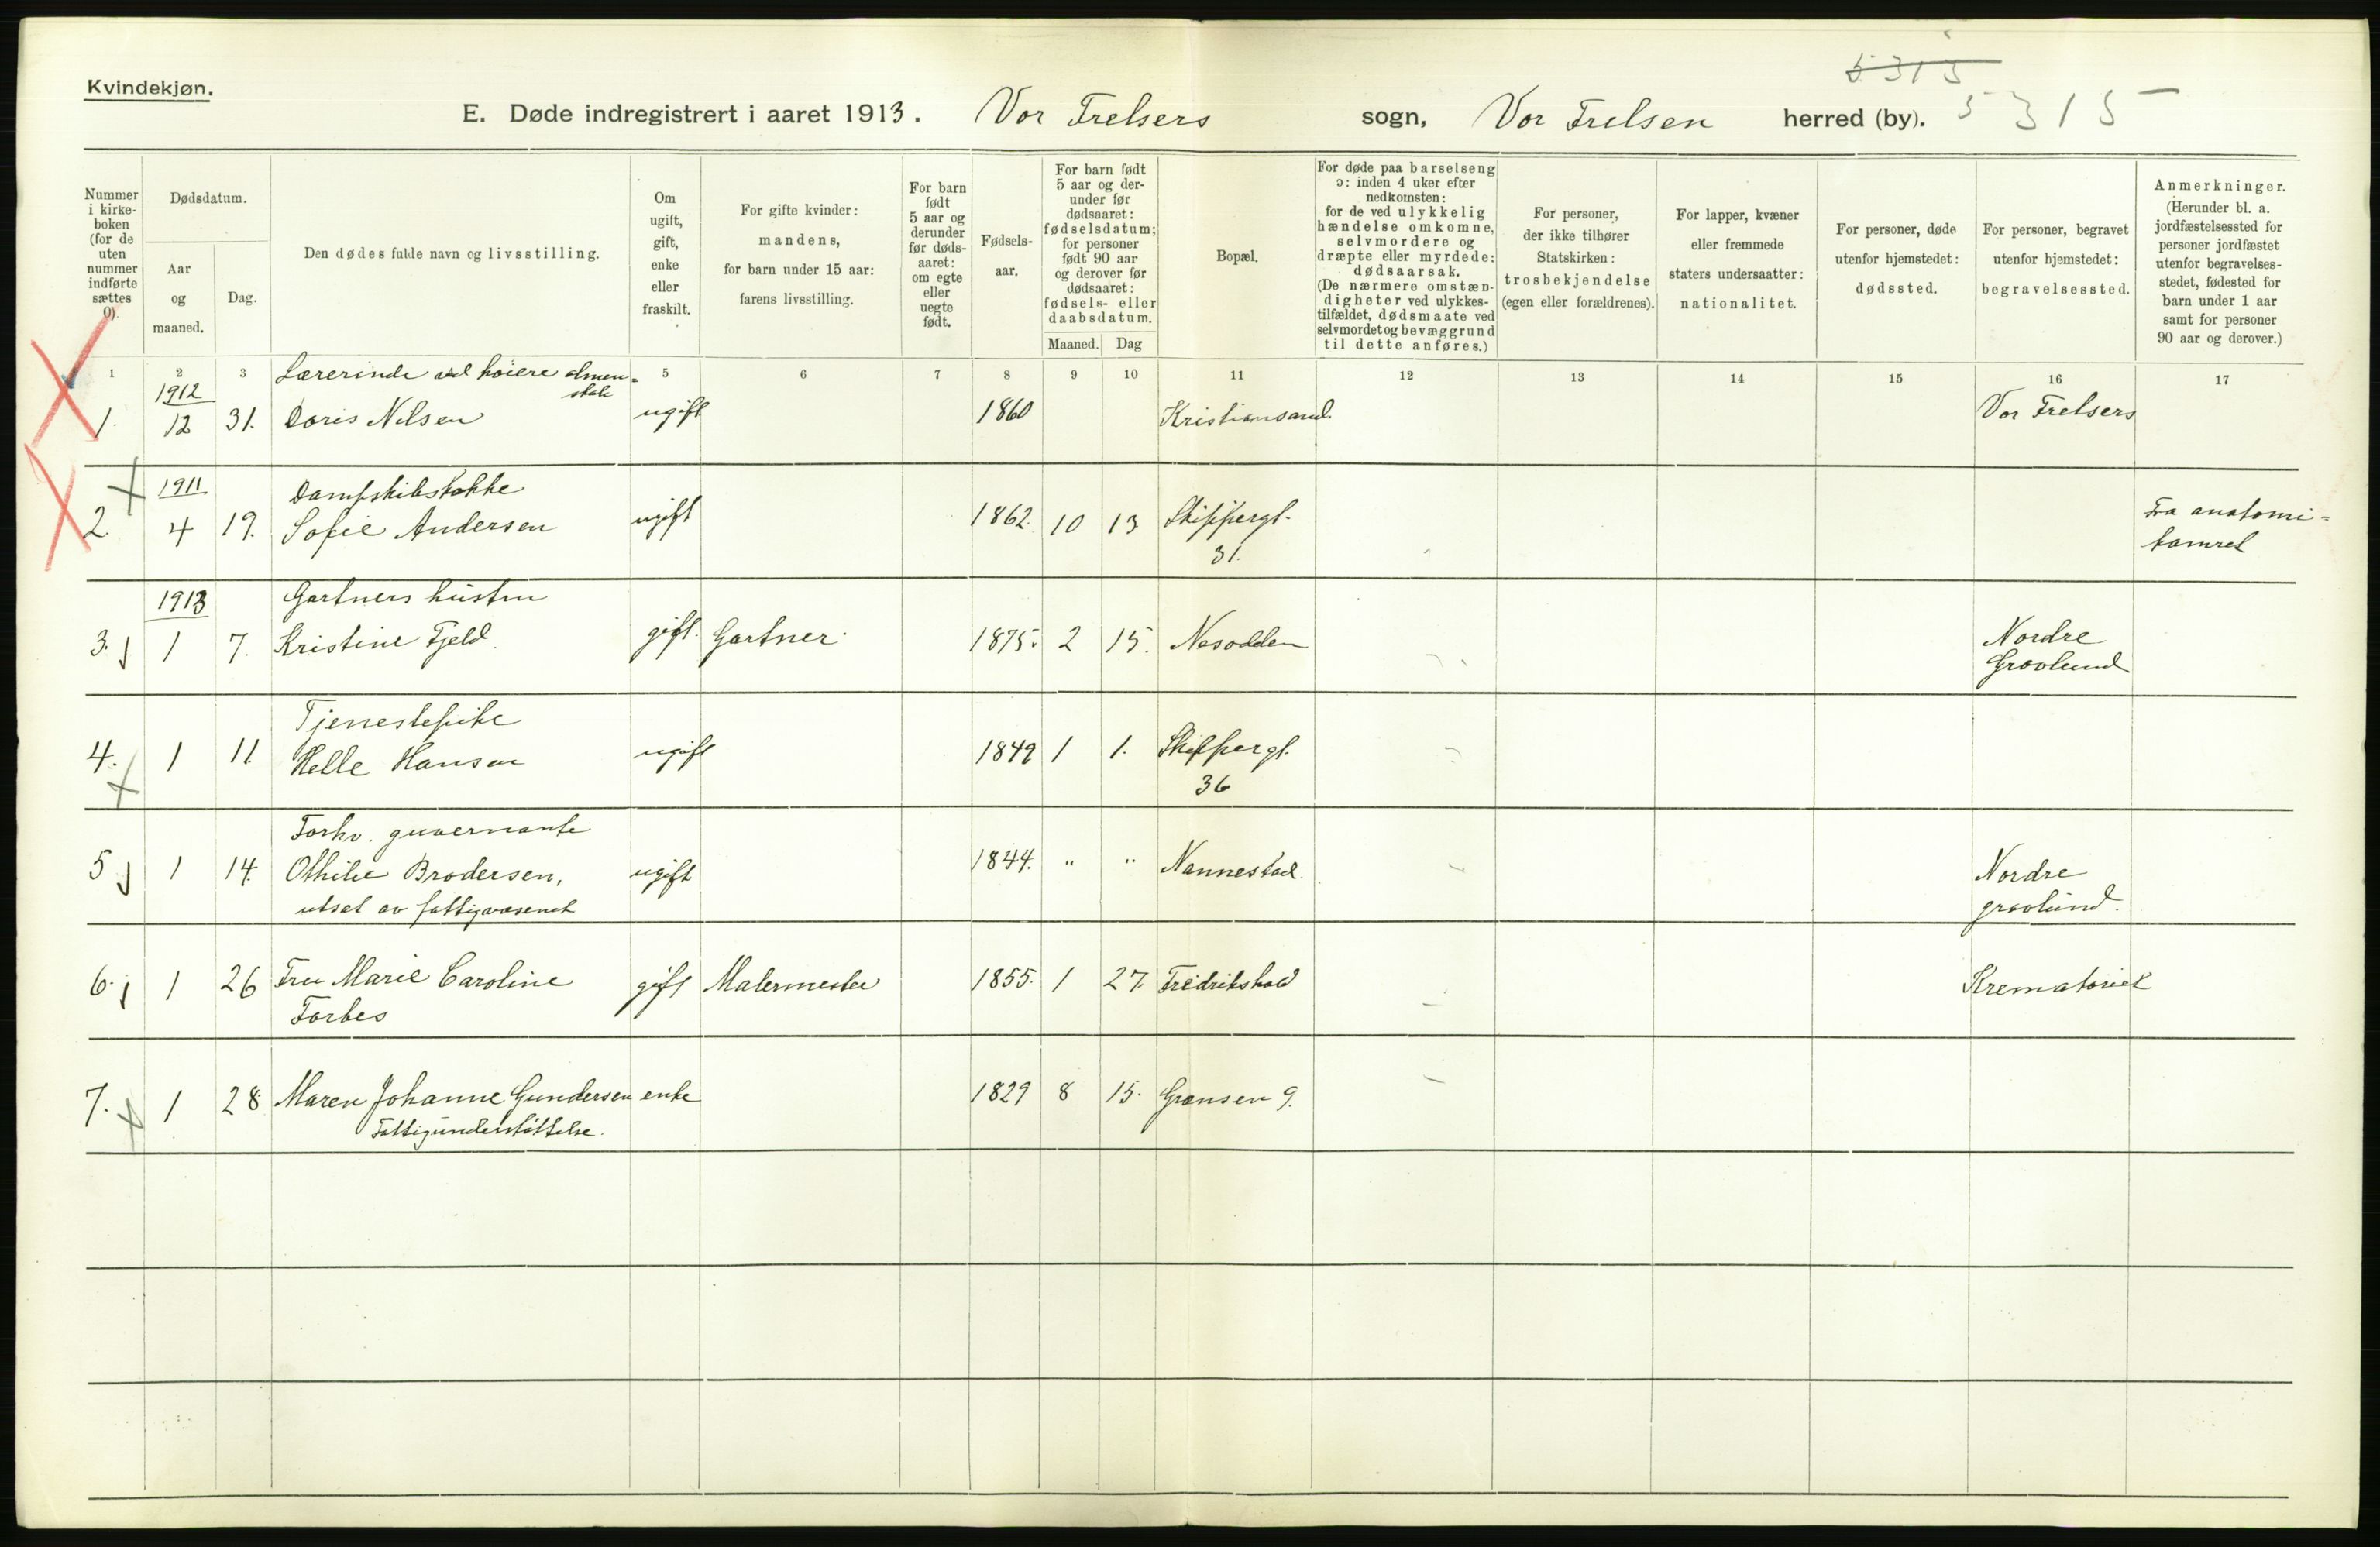 5315
Kvindekjøn.
E. Døde indregistrert i aaret 1913. Vor Frelsers sogn, Vor Frelsen herred (by). 5315
Nummer i kirke-boken (for de uten nummer indførte sættes 0).
Dødsdatum.
Aar og maaned.
Dag.
Den dødes fulde navn og livsstilling.
Om ugift, gift, enke eller fraskilt.
For gifte kvinder: mandens, for barn under 15 aar: farens livsstilling.
For barn født 5 aar og derunder før døds-aaret: om egte eller uegte født.
Fødsels-aar.
For barn født 5 aar og der-under før dødsaaret: fødselsdatum; for personer født 90 aar og derover før dødsaaret: fødsels- eller daabsdatum.
Maaned. Dag
Bopæl.
For døde paa barselseng ɔ: inden 4 uker efter nedkomsten: for de ved ulykkelig hændelse omkomne, selvmordere og dræpte eller myrdede: dødsaarsak. (De nærmere omstæn-digheter ved ulykkes-tilfældet, dødsmaate ved selvmordet og bevæggrund til dette anføres.)
For personer, der ikke tilhører Statskirken: trosbekjendelse (egen eller forældrenes).
For lapper, kvæner eller fremmede staters undersaatter: nationalitet.
For personer, døde utenfor hjemstedet: dødssted.
For personer, begravet utenfor hjemstedet: begravelsessted.
Anmerkninger. (Herunder bl. a. jordfæstelsessted for personer jordfæstet utenfor begravelses-stedet, fødested for barn under 1 aar samt for personer 90 aar og derover.)
1 2 3 5 6 7 8 9 10 11 12 13 14 15 16 17
1912 Lærerinde ved høiere almen=
skole
1. 12 31. Doris Nilsen ugift 1860 Kristiansand. Vor Frelsers
1911 Dampskibskokke
2. 4 19. Sofie Andersen ugift 1862. 10 13 Skippergt. Fra anatomi=
31. kamret
1913 Gartners hustru
3. 1 7. Kristine Fjeld. gift. Gartner. 1875. 2 15. Nesodden Nordre
Gravlund
Tjenestepike
4. 1 11 Helle Hansen ugift 1849 1 1. Skippergt.
36
Forhv. guvernante
5 1 14. Othilie Brodersen, ugift 1844. " " Nannestad. Nordre
utsat av fattigvæsenet gravlund.
6. 1 26 Fru Marie Caroline gift Malermester 1855. 1 27. Fredrikshald Krematoriet
Forbes
7. 1 28 Maren Johanne Gundersen enke 1829 8 15. Grænsen 9.
Fattigunderstøttelse.